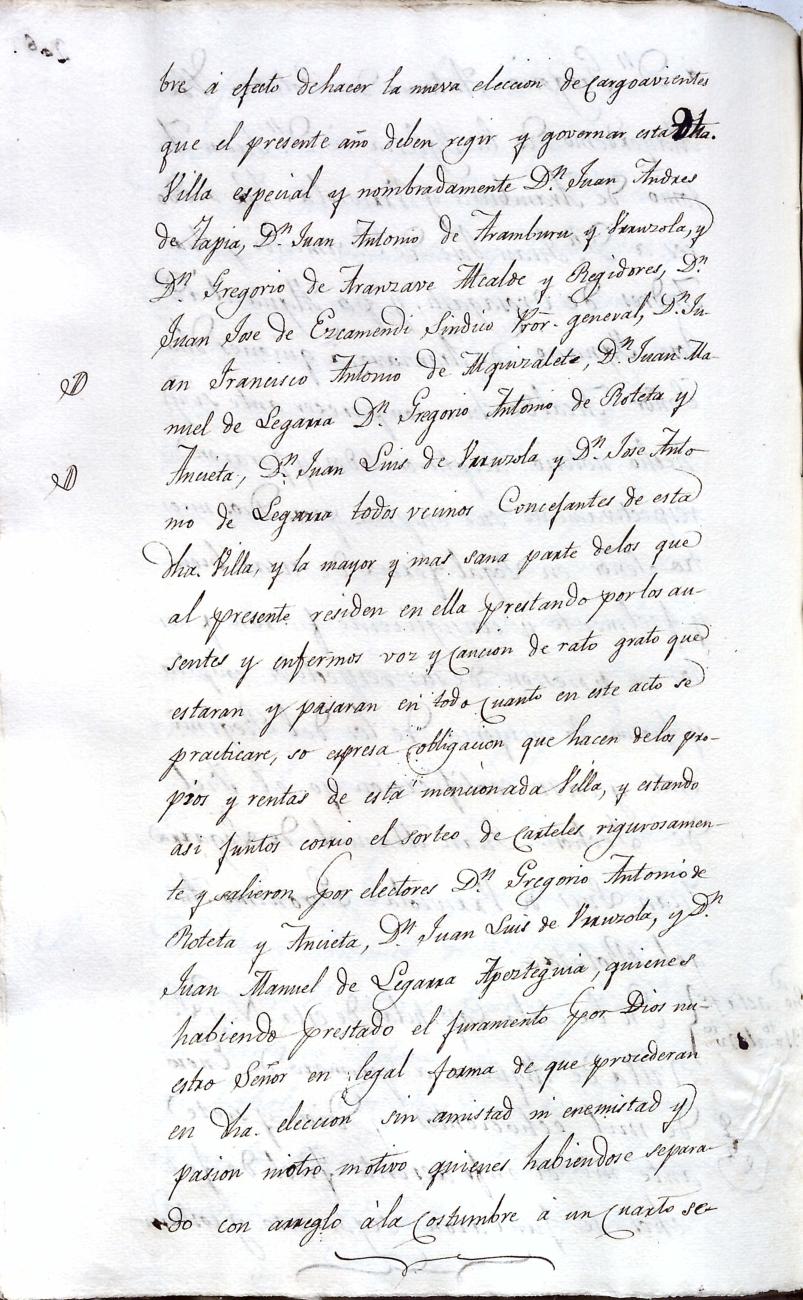 bre á efecto de hacer la nueva eleccion de Cargoavientes
que el presente año deben regir y governar esta dha.
21
Villa especial y nombradamente Dn. Juan Andres
de Zapia, Dn. Juan Antonio de Aramburu y Urruzola, y
Dn. Gregorio de Aranzave Alcalde y Regidores, Dn.
Juan Jose de Ezcamendi Sindico Pror. general, Dn. Ju-
an Francisco Antonio de Alquizalete, Dn. Juan Ma-
nuel de Legarra Dn. Gregorio Antonio de Roteta y
Ancieta, Dn. Juan Luis de Urruzola y Dn. Jose Anto
nio de Legarra todos vecinos Concejantes de esta
dha. Villa, y la mayor y mas sana parte delos que
al presente residen en ella prestando por los au-
sentes y enfermos voz y Caucion de rato grato que
estaran y pasaran en todo Cuanto en este acto se
practicare, so espresa obligacion que hacen delos pro-
pios y rentas de esta mencionada Villa, y estando
asi juntos corrio el sorteo de Carteles rigurosamen-
te y salieron por electores Dn. Gregorio Antonio de
Roteta y Ancieta, Dn. Juan Luis de Urruzola, y Dn.
Juan Manuel de Legarra Apezteguia, quienes
habiendo prestado el juramento por Dios nu-
estro Señor en legal forma de que procederan
en dha. eleccion sin amistad ni enemistad y
pasion niotro motivo quienes habiendose separa-
do con arreglo á la Costumbre á un Cuarto se-